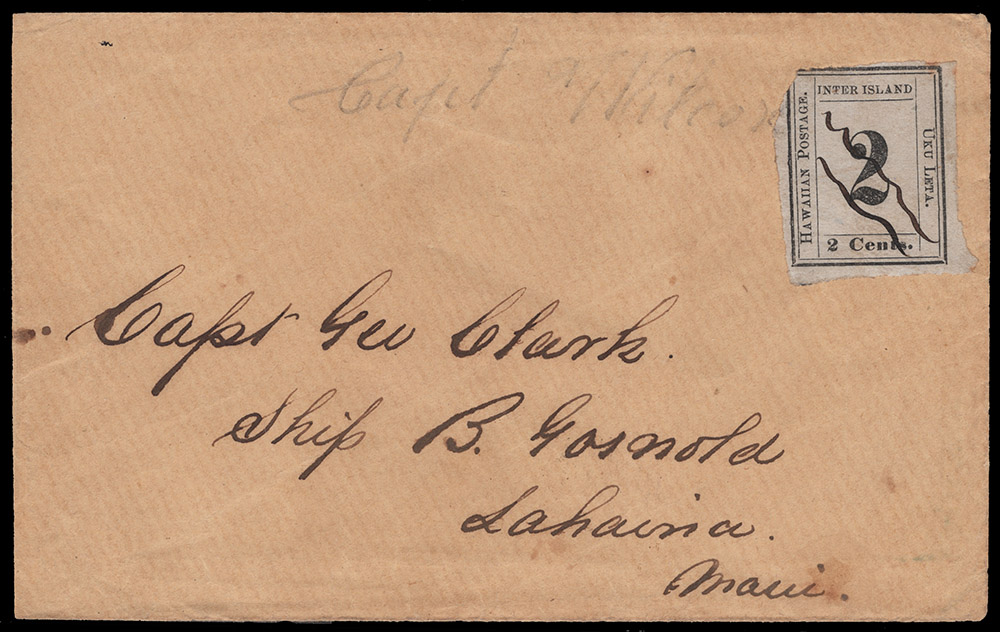 Capt Wilcox
HAWAIIAN POSTAGE.
INTER ISLAND
UKU LETA.
2
2 Cents.
Capt Geo Clark.
Ship B. Gosnold
Lahaina.
Maui.